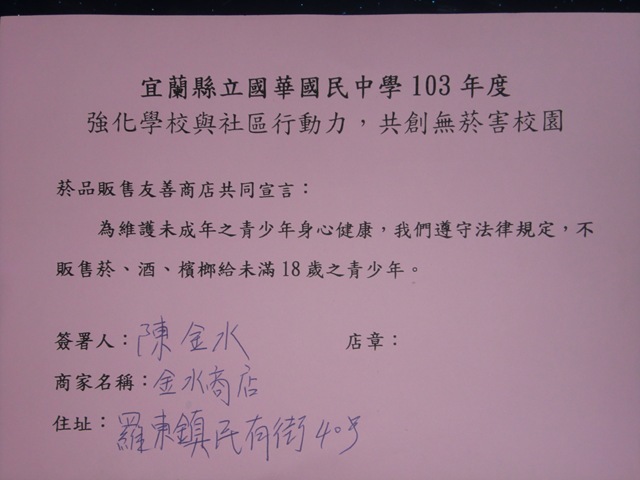 宜蘭縣立國華國民中學 103 年度
強化學校與社區行動力，共創無菸害校園
菸品販售友善商店共同宣言：
為維護未成年之青少年身心健康，我們遵守法律規定，不
販售菸、酒、檳榔給未滿 18 歲之青少年。
簽署人：陳金水 店章：
商家名稱：金水商店
住址：羅東鎮民有街40号